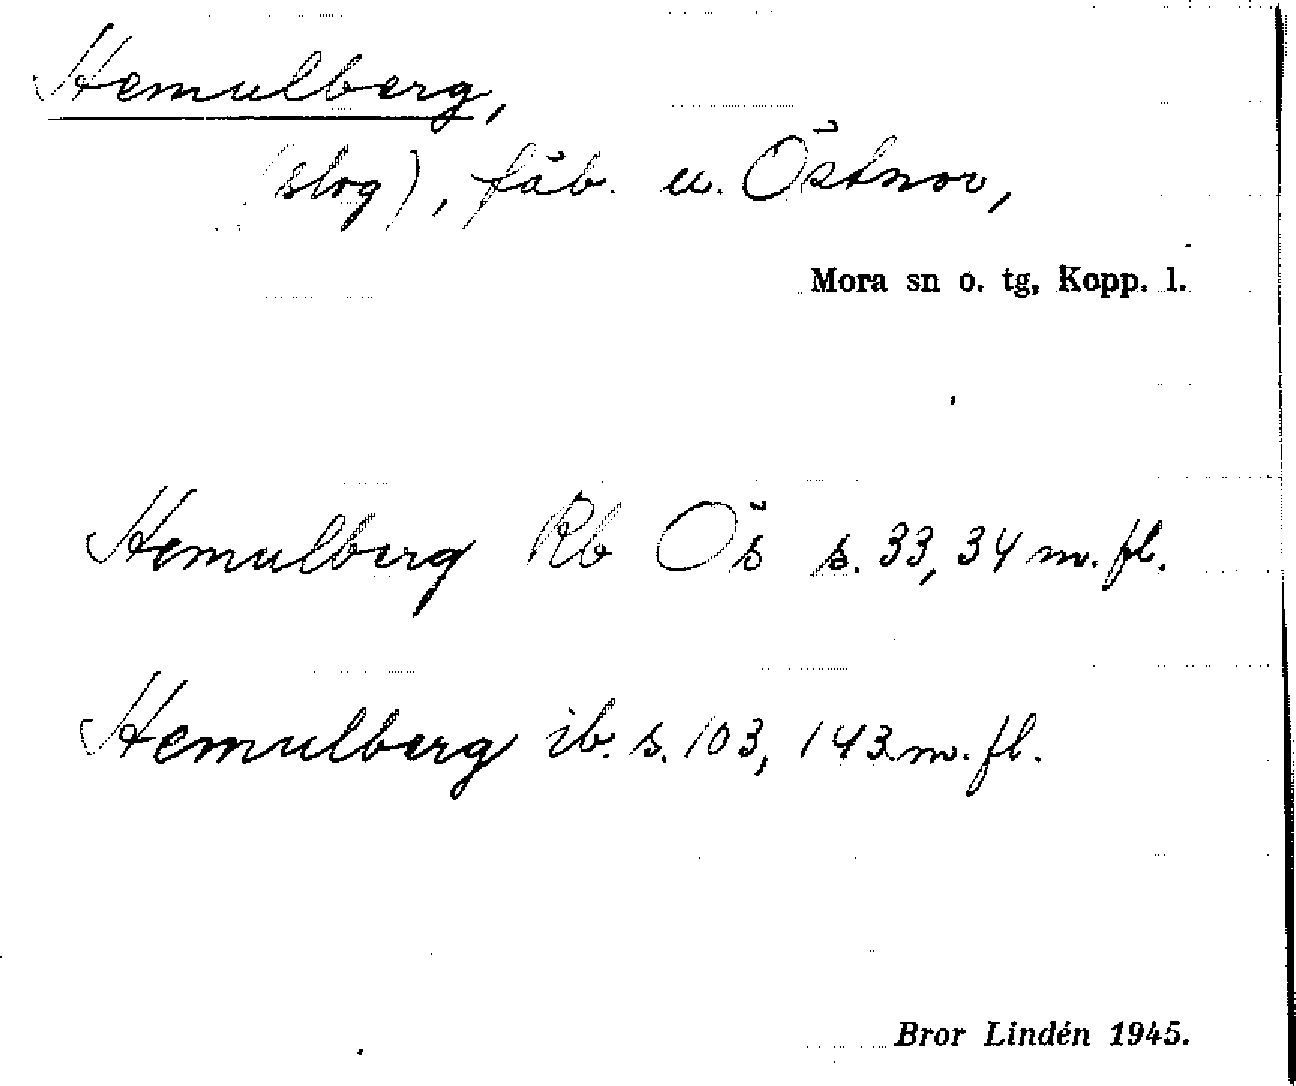 Hemulberg,
(slog), fäb. u. Östnor,
Mora sn o. tg, Kopp. l.
Hemulberg Rb Ös s. 33, 34 m. fl.
Hemulberg ib. s. 103, 143 m. fl.
Bror Lindén 1945.